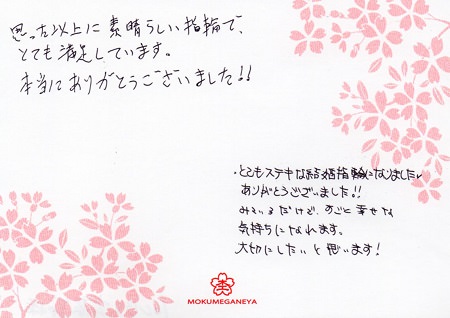 思った以上に素晴らしい指輪で、
とても満足しています。
本当にありがとうございました!!
・とてもステキな結婚指輪になりました
ありがとうございました!!
みているだけで、すごく幸せな
気持ちになれます。
大切にしたいと思います!
MOKUMEGANEYA